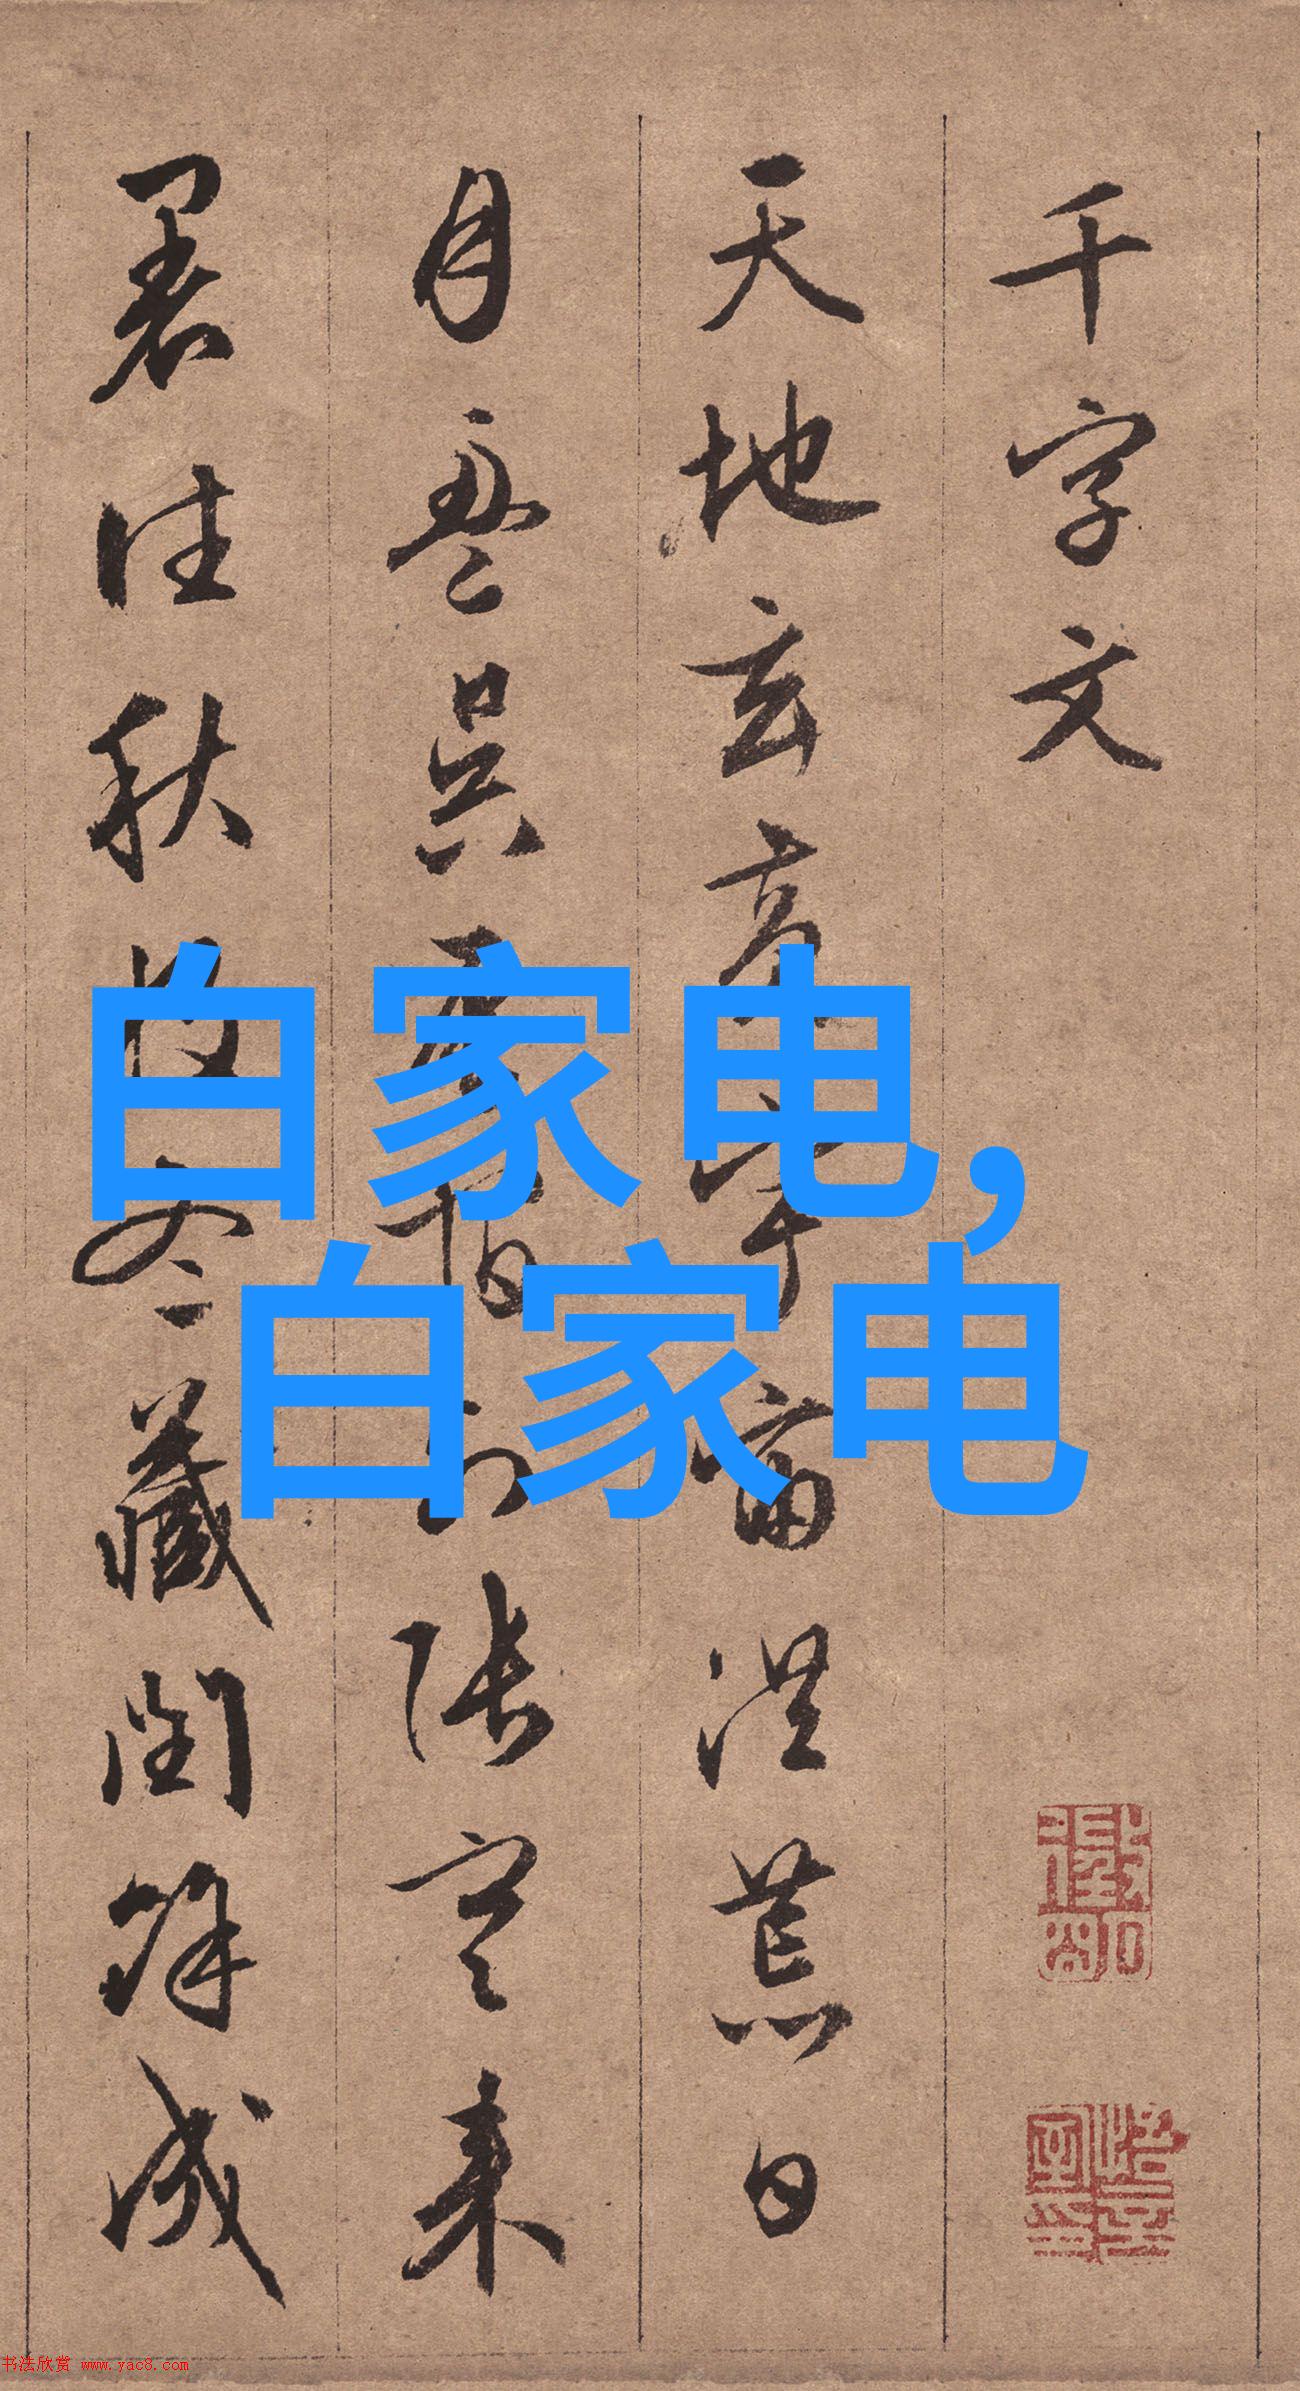 千字文
天地玄黄宇宙洪荒日
月盈昃辰宿列张寒来
暑往秋收冬藏闰馀成
白家电,
白家电
书法欣赏 www.yac8.com